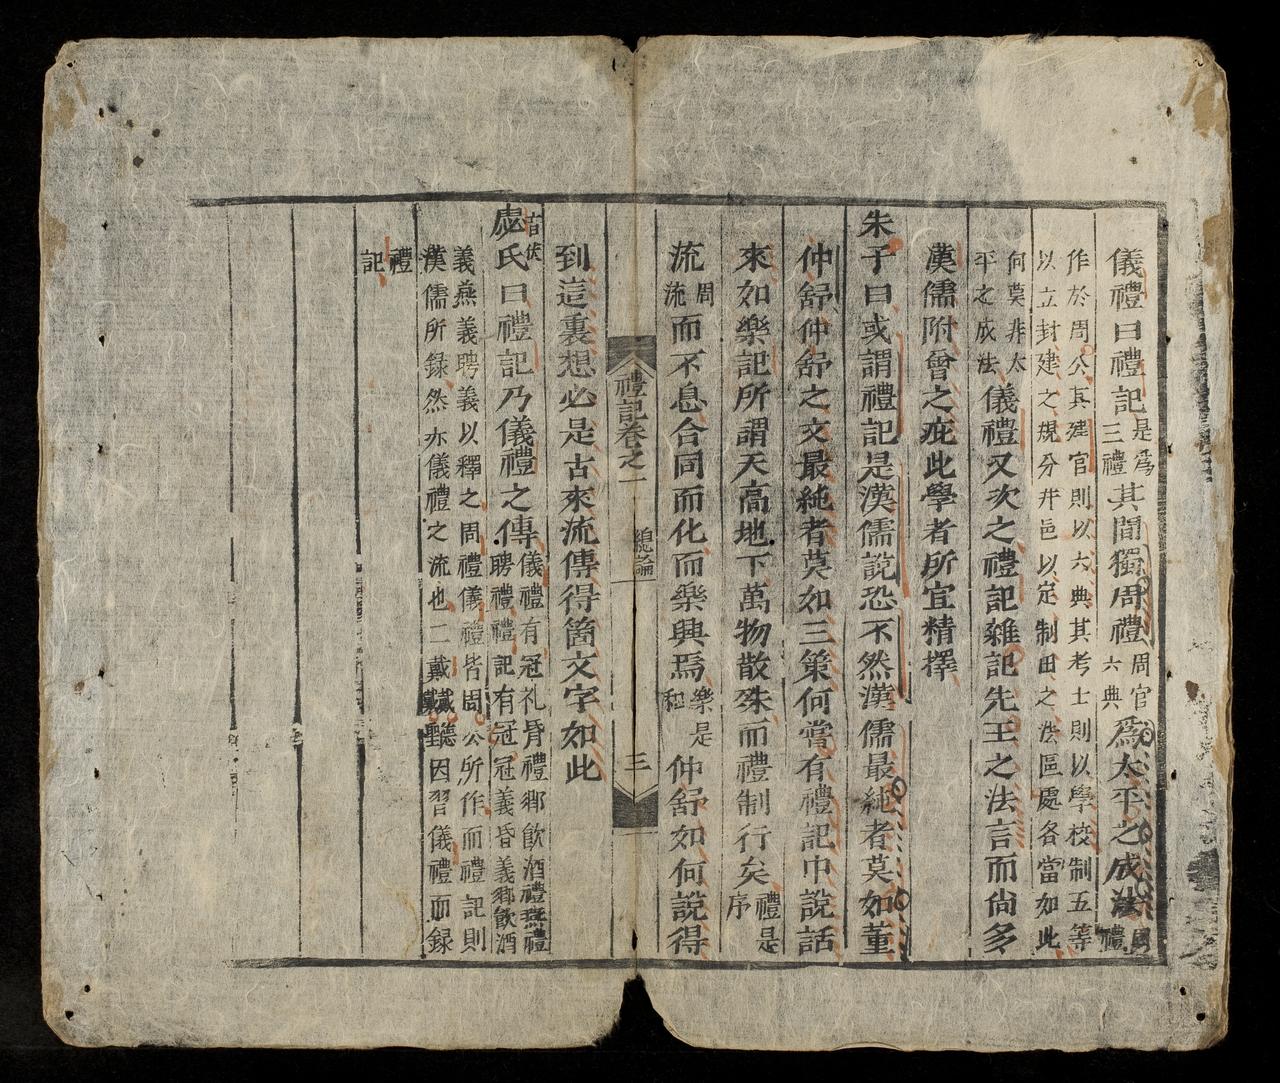 儀禮曰禮記是為三禮其間獨周禮周官六典為太平之成法周禮
作於周公其建官則以六典其考士則以學校制五等
以立封建之規分井邑以定制田之法區處各當如此
何莫非太平之成法儀禮又次之禮記雜記先王之法言而尚多
漢儒附會之疵此學者所宜精擇
朱子曰或謂禮記是漢儒說恐不然漢儒最純者莫如董
仲舒仲舒之文最純者莫如三策何嘗有禮記中說話
來如樂記所謂天高地下萬物散殊而禮制行矣禮是序
流周流而不息合同而化而樂興焉樂是和仲舒如何說得
禮記卷之一 總論 三
到這裏想必是古來流傳得箇文字如此
虙音伏氏曰禮記乃儀禮之傳儀禮有冠礼昏禮鄉飲酒禮燕禮
聘禮禮記有冠冠義昏義鄉飲酒
義燕義聘義以釋之周禮儀禮皆周公所作而禮記則
漢儒所録然亦儀禮之流也二戴戴德戴聖因習儀禮而録
禮記